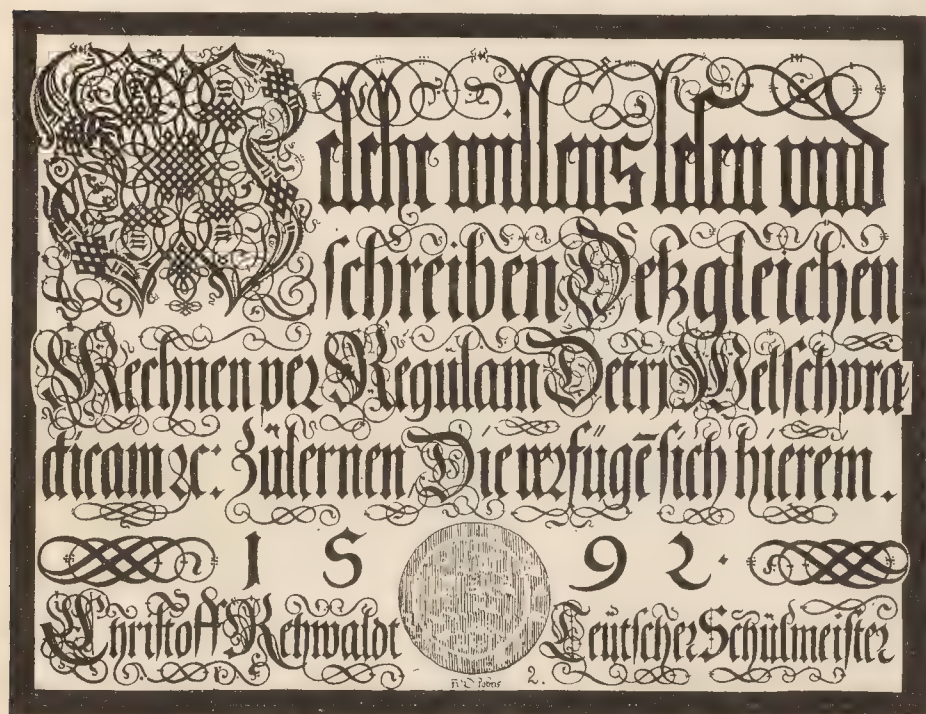 Welche willens lesen und
schreiben Deßgleichen
Rechnen per Regulam Detrj Welschpra
cticam ꝛc: Zülernen Die verfügē sich hierein.
1592.
Christoff Rehwaldt Teütscher Schülmeister
2.